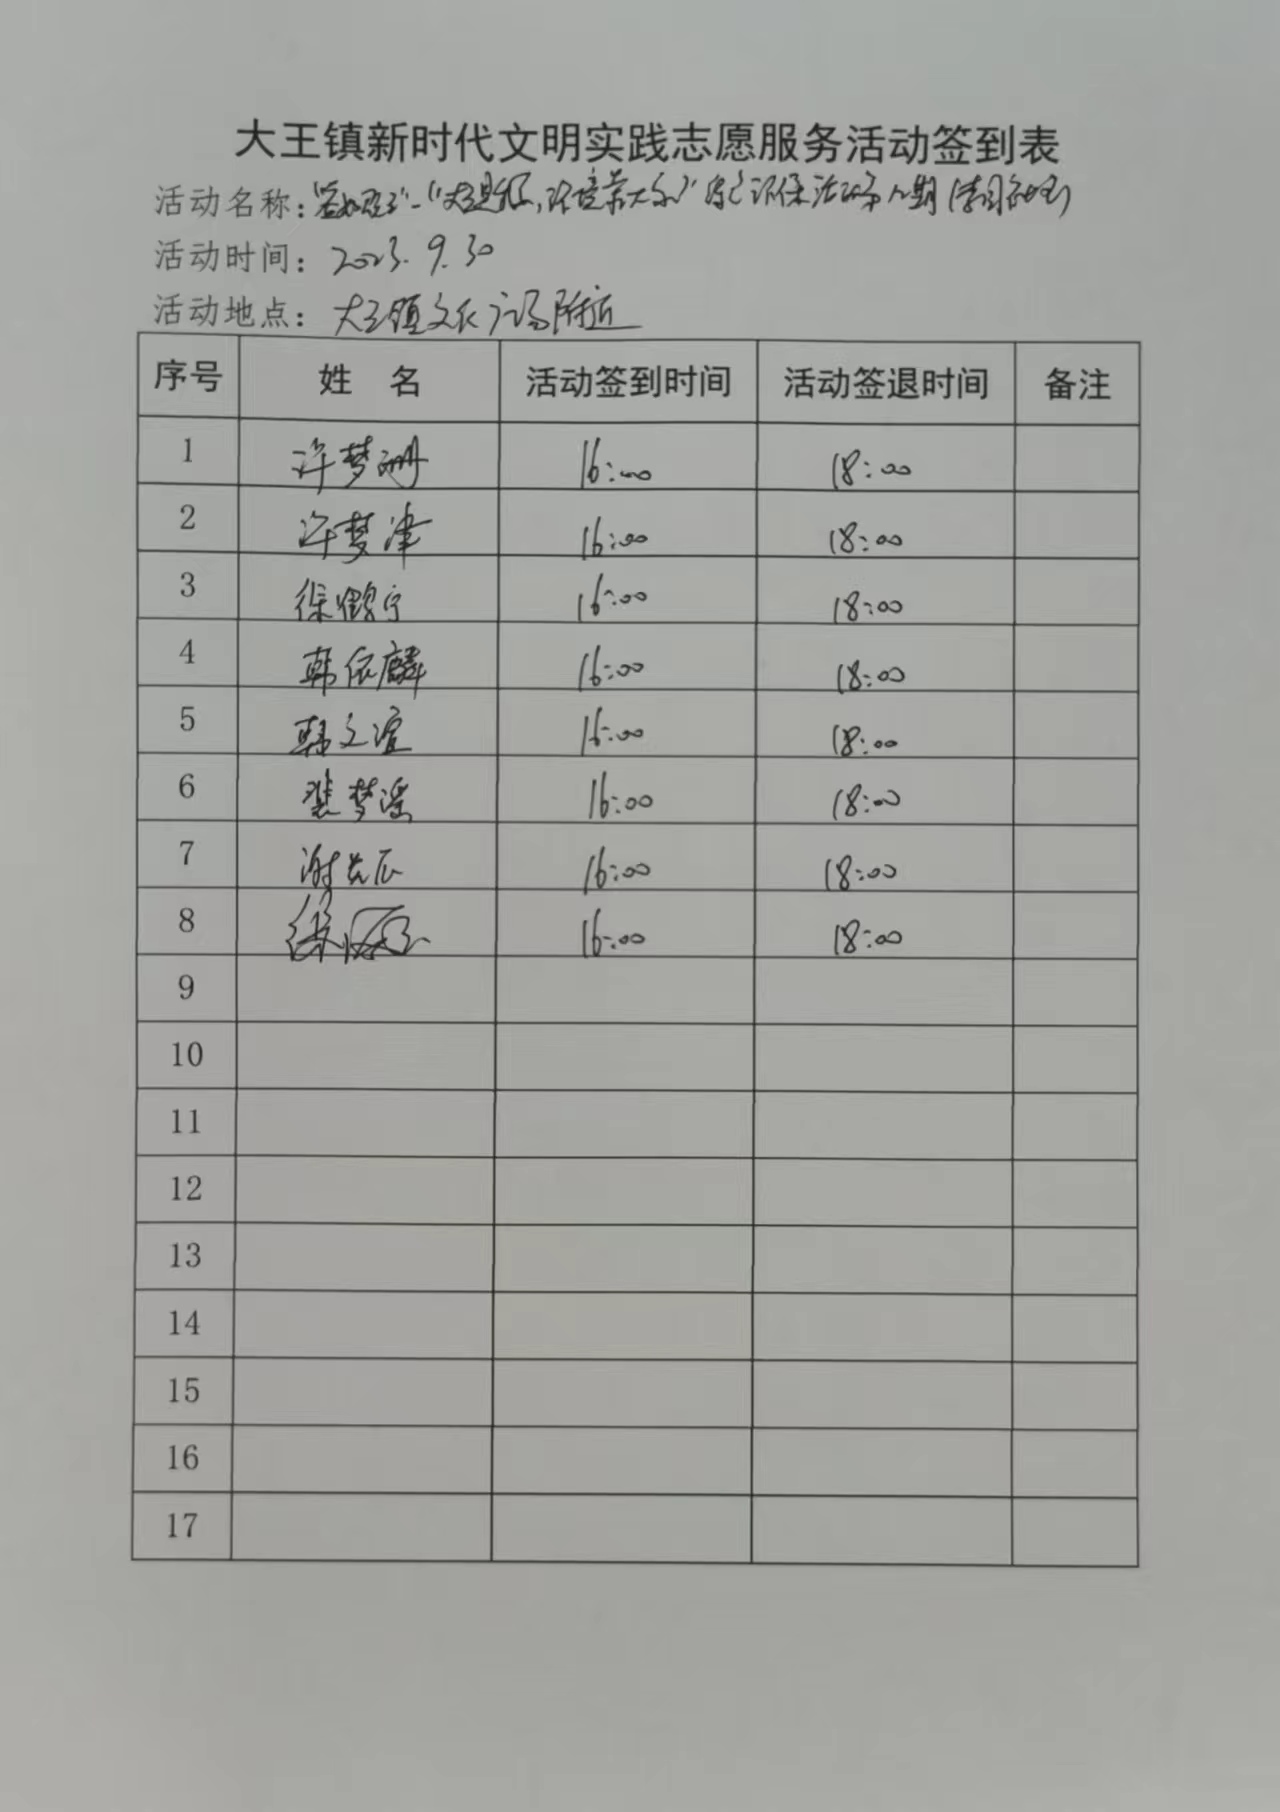 大王镇新时代文明实践志愿服务活动签到表
活动名称：
活动时间：2023.9.30
活动地点：大王镇文化广场附近
序号 姓 名 活动签到时间 活动签退时间 备注
1 许梦洲 16:00 18:00
2 许梦津 16:00 18:00
3 徐鹤宁 16:00 18:00
4 韩依麟 16:00 18:00
5 韩文谊 16:00 18:00
6 裴梦瑶 16:00 18:00
7 谢 16:00 18:00
8 徐 16:00 18:00
9
10
11
12
13
14
15
16
17